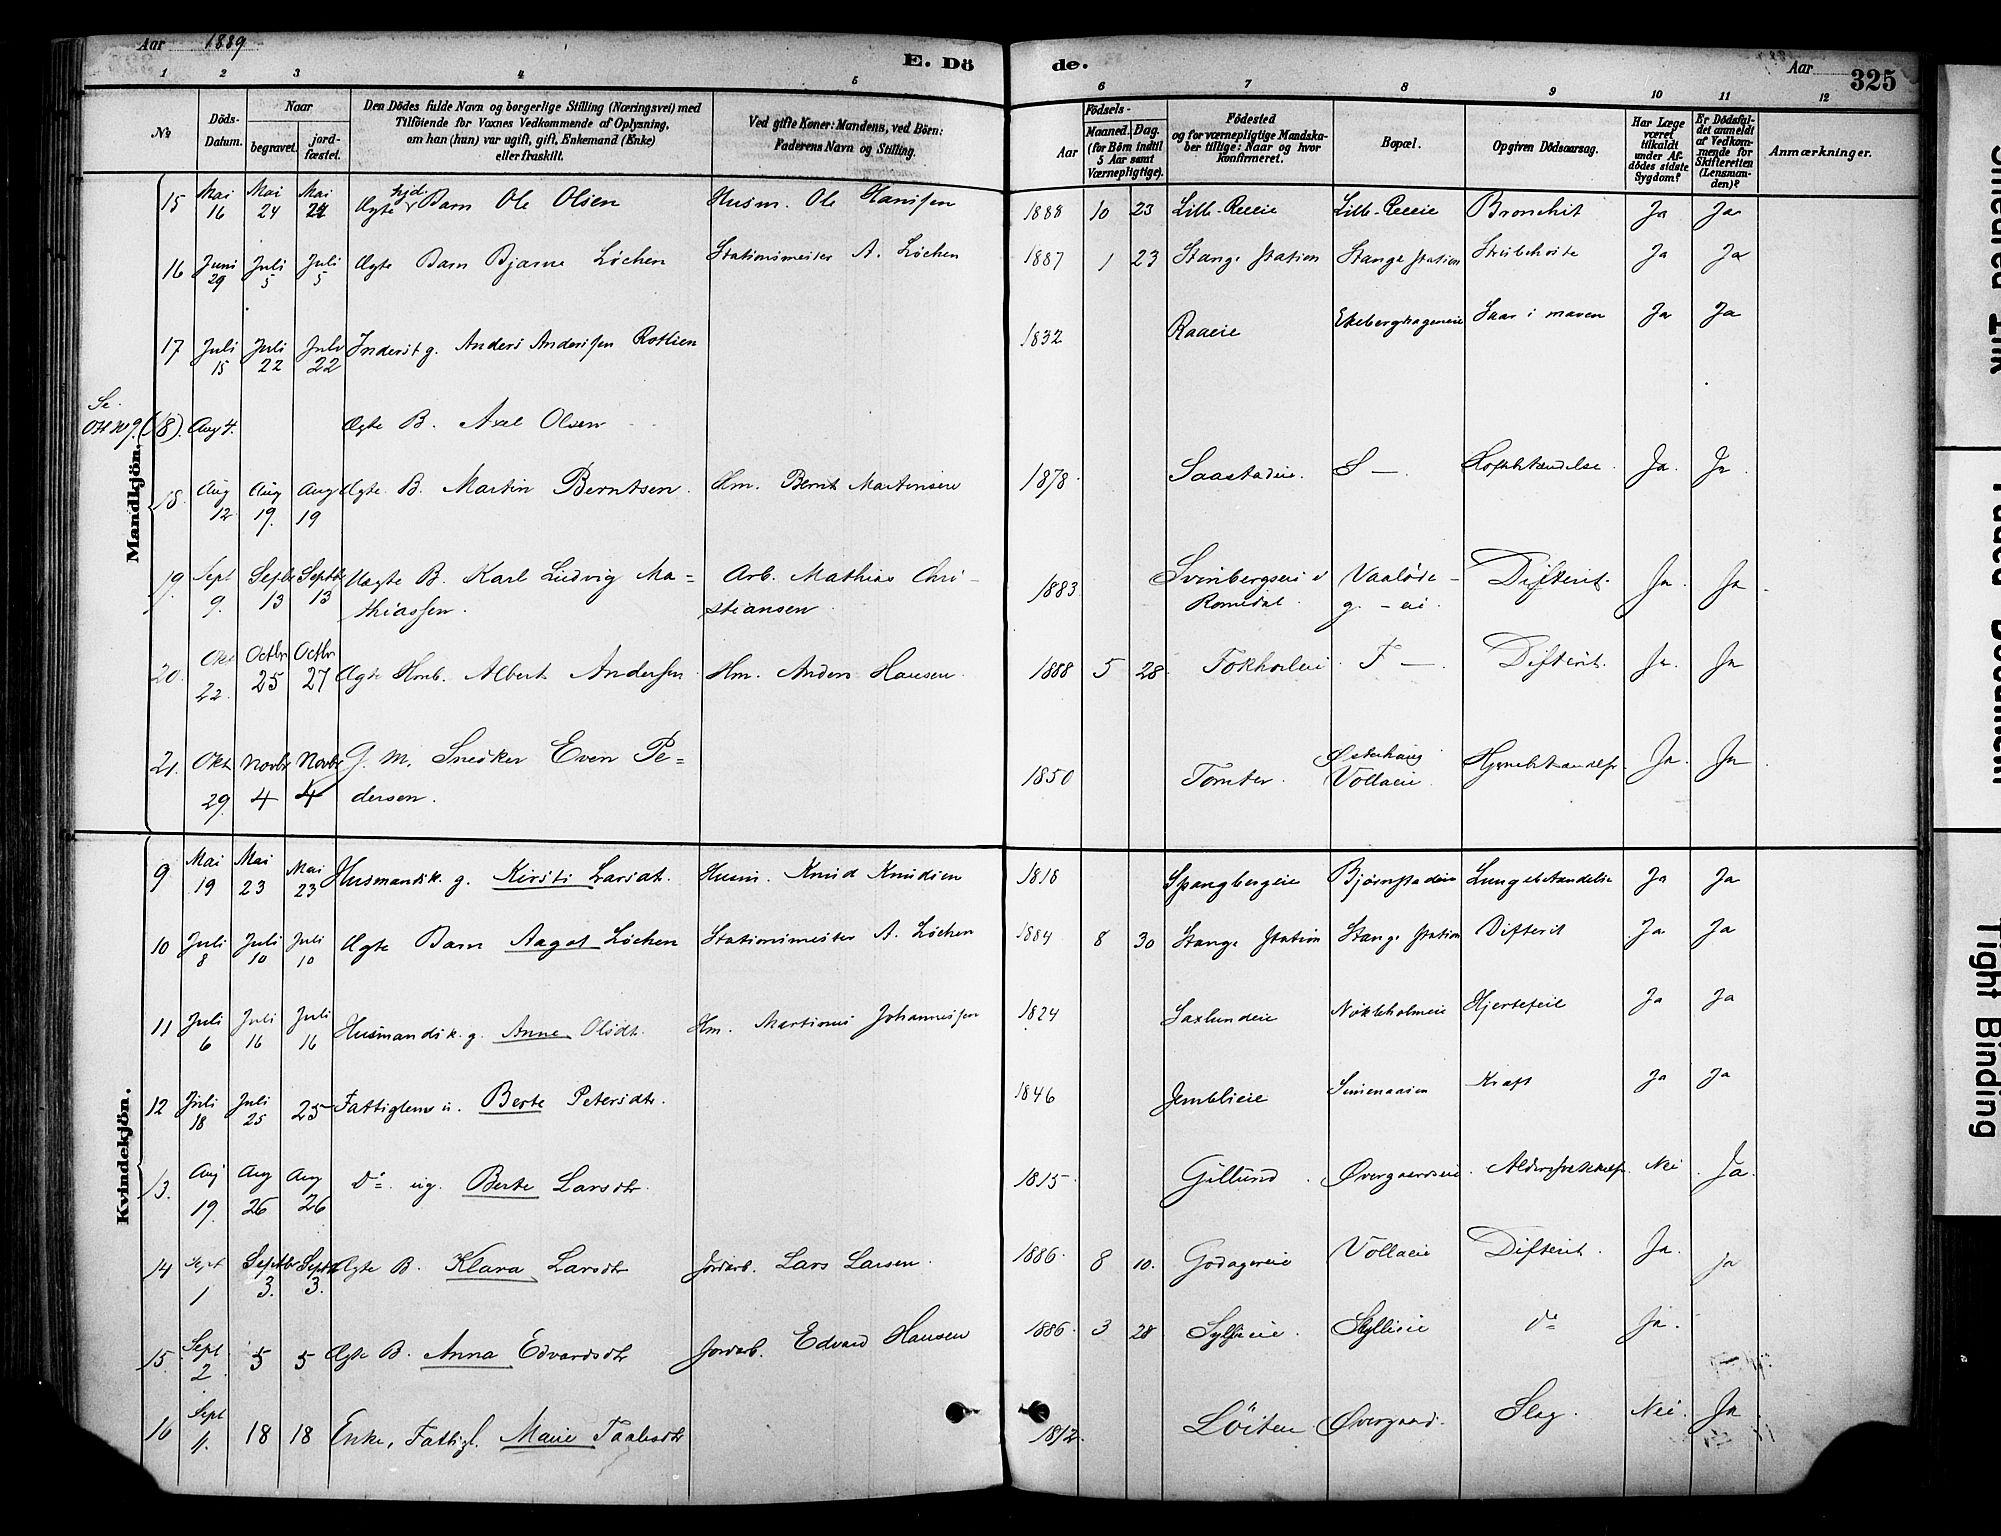 Aar 1889
E. Dö
de.
Aar
325
1 2 3 4 5 6 7 8 9 10 11 12
No.
Döds-Datum.
Naar
begravet.
jordfæstet.
Den Dödes fulde Navn og borgerlige Stilling (Næringsvei) med
Tilföiende for Voxnes Vedkommende af Oplysning,
om han (hun) var ugift, gift, Enkemand (Enke)
eller fraskilt.
Ved gifte Koner: Mandens, ved Börn:
Faderens Navn og Stilling.
Födsels-
Aar
Maaned.
Dag.
(for Börn indtil
5 Aar samt
Værnepligtige).
Födested
og for værnepligtige Mandska-
ber tillige: Naar og hvor
konfirmeret.
Bopæl.
Opgiven Dödsaarsag.
Har Læge
været
tilkaldt
under Af-
dödes sidste
Sygdom?
Er Dödsfal-
det anmeldt
af Vedkom-
mende for
Skifteretten
(Lensman-
den)?
Anmærkninger.
Mandkjön.
15 Mai 16 Mai 24 Mai 24 Ægte Barn Ole Olsen Husm. Ole Hansen 1888 10 23 Lille-Reeeie Lille-Reeeie Bronchit Ja Ja
16 Juni 29 Juli 5 Juli 5 Ægte Barn Bjarne Löchen Stationsmester A. Löchen 1887 1 23 Stange Station Stange Station Strubehoste Ja Ja
17 Juli 15 Juli 22 Juli 22 Inderst g. Anders Anderssen 1832 Raaeie Ekeberghageneie Saar i maven Ja Ja
Se
(18). Aug 4. Ægte B. Axel Olsen
18. Aug 12 Aug 19. Aug 19 Ægte B. Martin Berntsen. Hm. Bernt Martinsen 1878 Saastadeie. S —. Ja. Ja.
19. Sept 9. Septr 13 Septbr 13 Uægte B. Karl Ludvig Ma=
thiassen. Arb. Mathias Chri-
stiansen 1883 Svinbergseie i
Romedal. Difterit. Ja. Ja
20. Okt 22. Octbr 25 Octbr 27 Ægte Hmb. Albert Andersen. Hm. Anders Hansen. 1888 5 28. F —. Difterit. Ja. Ja
21. Okt 29. Novbr 4 Novbr 4 G. M. Snedker Even Pe=
dersen. 1850 Tomter. Østerhaug
Vollaeie. Ja. Ja
Kvindekjön.
9 Mai 19 Mai 23 Mai 23 Husmandsk. g. Kirsti Larsdt. Husm. Knud Knudsen 1818 Spangbergeie Bjørnstadeie Lungebetændelse Ja Ja
10 Juli 8 Juli 10 Juli 10 Ægte Barn Aagot Löchen Stationsmester A. Löchen 1884 8 30 Stange Station Stange Station Difterit Ja Ja
11 Juli 6 Juli 16 Juli 16 Husmandsk. g. Anne Olsdt. Hm. Martinus Johannessen 1824 Saxlundeie Nökleholmeie Hjertefeil Ja Ja
12 Juli 18 Juli 25 25 Fattiglem u. Berte Petersdtr. 1846 Jemblieie Kræft Ja Ja
13. Aug 19. Aug 26 Aug 26 Do. ug. Berte Larsdtr. 1815 Gillund. Øvergaardseie. Nei. Ja.
14 Sept 1 Septbr 3. Septbr 3. Ægte B. Klara Larsdtr Jordarb. Lars Larsen. 1886. 8 10. Godagereie Vollaeie Difterit. Ja. ja
15. Sept 2. 5 5 Ægte B. Anna Edvardsdtr Jordarb. Edvard Hansen 1886. 3 28 Skyllieie Do Ja.
16 Sept 11. 18 18 Enke, Fattigl. Marie Taalesdtr 1812. Löiten Øvergaard. Slag. Nei. Ja
Smeared Ink
Faded Document
Tight Binding